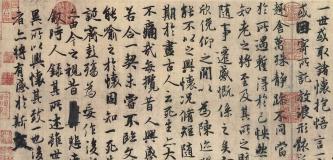 世或取諸懷抱悟言一
或因寄所託放浪形骸
趣舍萬殊靜躁不同當
於所遇蹔得於己怏然
知老之將至及其所之
隨事遷感慨係之矣
欣俛仰之閒以為陳迹
能不以之興懷況脩短隨
期於盡古人云死生亦大
不痛哉每攬昔人興感
若合一契未嘗不臨文
能喻之於懷固知一死生
誕齊彭殤為妄作後
今之視昔悲夫
敘時人錄其所述雖世
異所以興懷其致一也後
者亦將有感於斯